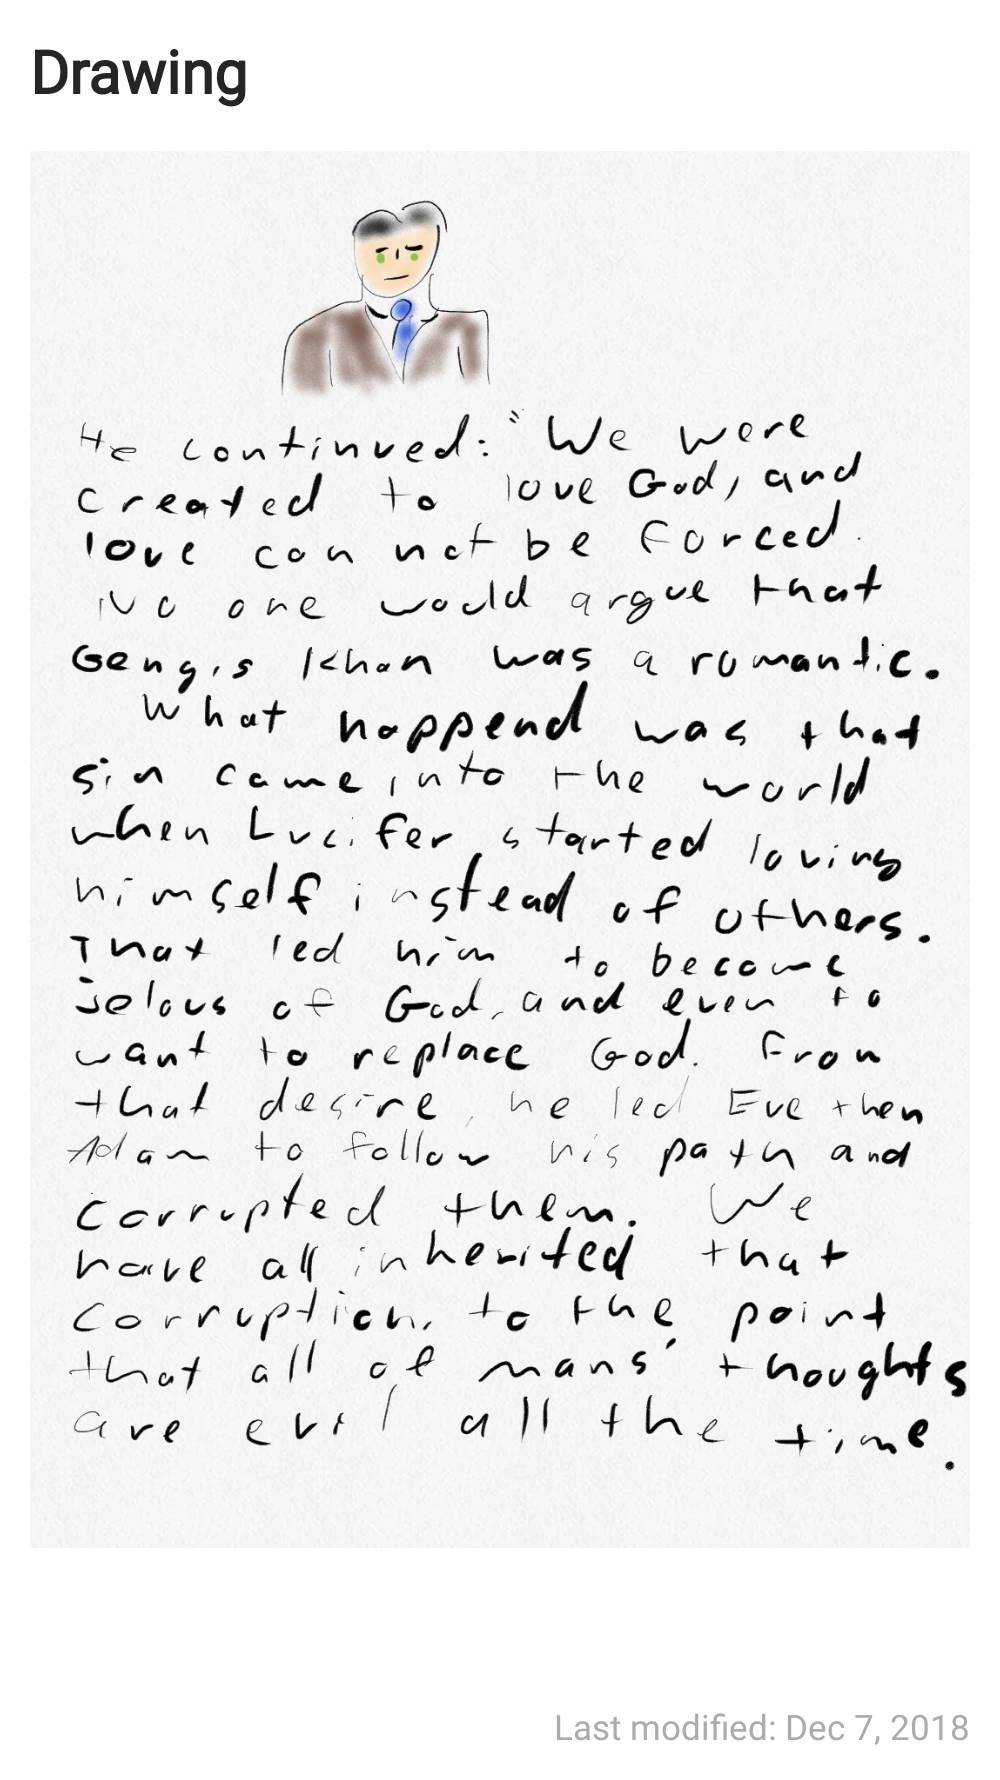 Drawing
He continued: "We were
created to love God, and
love can not be forced.
No one would argue that
Gengis Khan was a romantic.
What happend was that
sin came into the world
when Lucifer started loving
himself instead of others.
That led him to become
jelous of God, and even to
want to replace God. From
that desire, he led Eve then
Adam to follow his path and
corrupted them. We
have all inherited that
corruption, to the point
that all of mans' thoughts
are evil all the time.
Last modified: Dec 7, 2018